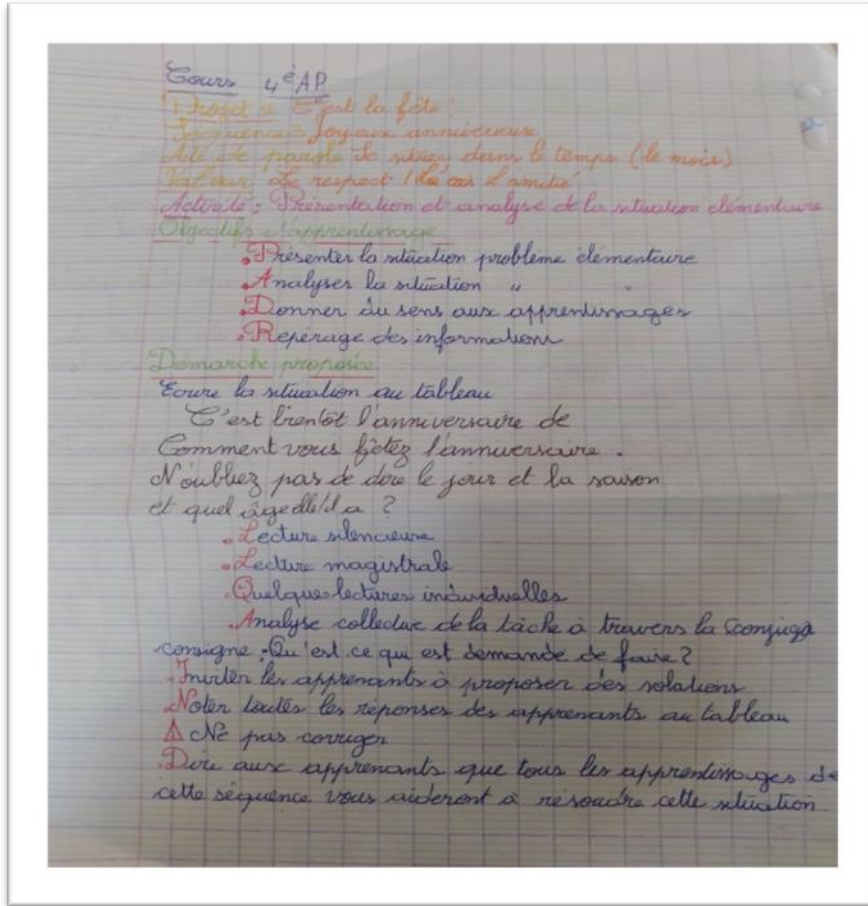 Cours 4è AP
Projet : C'est la fête !
Séquence 3 Joyeux anniversaire
Acte de parole Se situer dans le temps (le mois)
Valeur Le respect L'amitié
Activité : Présentation et analyse de la situation élémentaire
Objectifs d'apprentissage
. Présenter la situation problème élémentaire
. Analyser la situation " "
. Donner du sens aux apprentissages
. Repérage des informations
Demarche proposée
Ecrire la situation au tableau
C'est bientôt l'anniversaire de
Comment vous fêtez l'anniversaire .
N'oubliez pas de dire le jour et la saison
et quel âge elle/il a ?
. Lecture silencieuse
. Lecture magistrale
. Quelques lectures individuelles
. Analyse collective de la tâche à travers la
consigne : Qu'est ce qui est demandé de faire ?
. Inviter les apprenants à proposer des solutions
. Noter toutes les réponses des apprenants au tableau
⚠ Ne pas corriger
. Dire aux apprenants que tous les apprentissages de
cette séquence vous aideront à résoudre cette situation